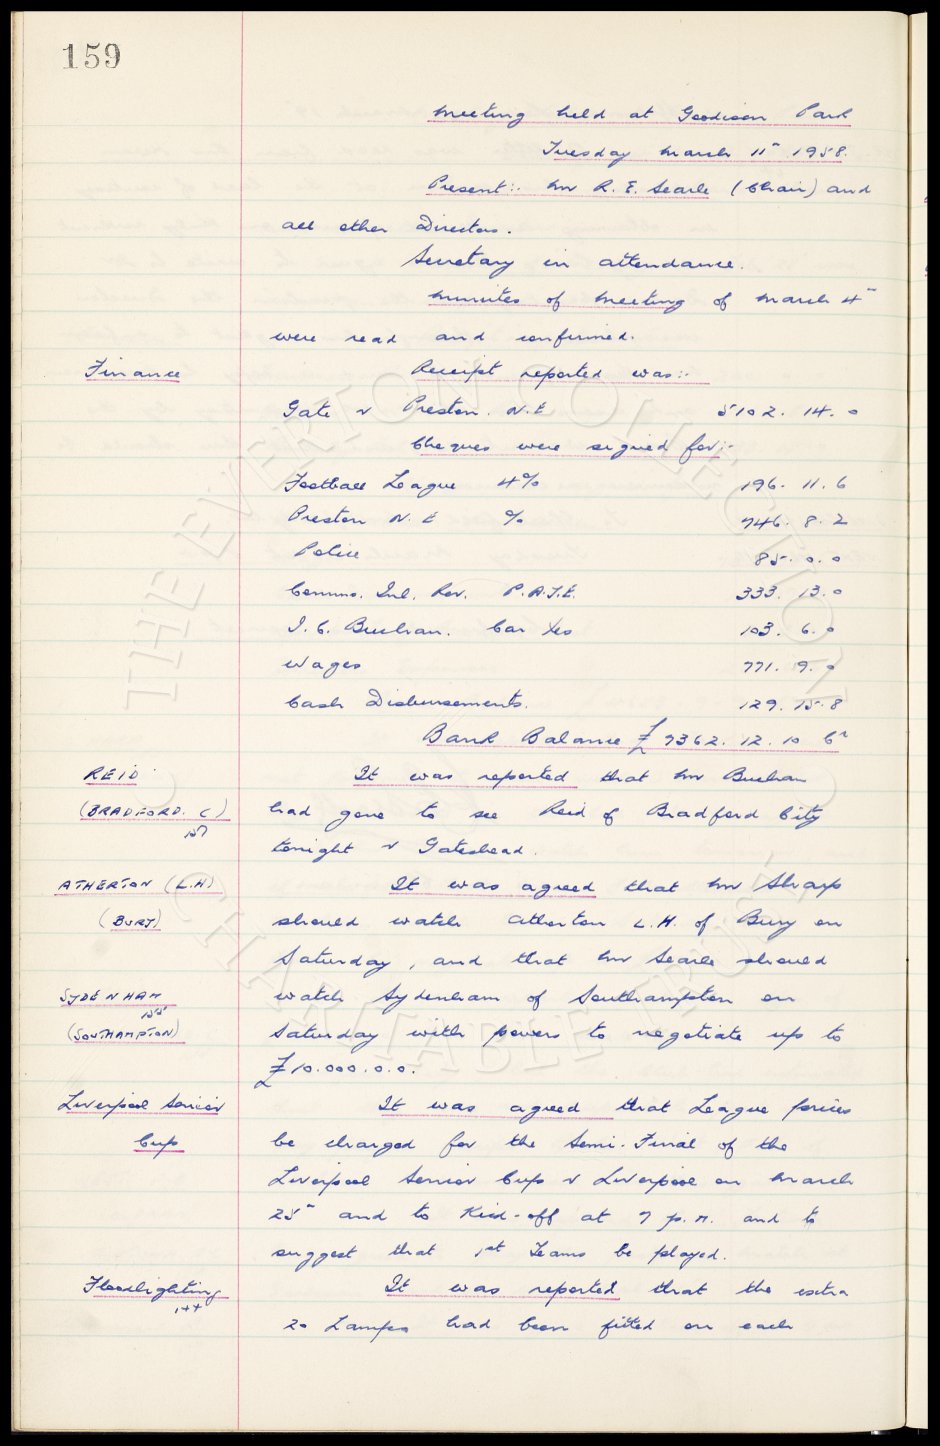 159
Meeting held at Goodison Park
Tuesday March 11" 1958.
Present:- Mr R. E. Searle (Chair) and
all other Directors.
Secretary in attendance.
Minutes of Meeting of March 4"
were read and confirmed.
Finance Receipt reported was:-
Gate v Preston. N.E 5102. 14. 0
Cheques were signed for:-
Football League 4% 196. 11. 6
Preston N. E % 946. 8. 2
Police 85. 0. 0
Commrs. Inl. Rev. P.A.Y.E. 333. 13. 0
I. C. Buchan. Car 103. 6. 0
Wages 771. 9. 0
Cash Disbursements. 129. 15. 8
Bank Balance £ 9362. 12. 10 Cr
REID It was reported that Mr Buchan
(BRADFORD. C) had gone to see Reid of Bradford City
157
tonight v Gateshead.
ATHERTON (L.H) It was agreed that Mr Sharp
(BURY) should watch Atherton L.H. of Bury on
Saturday, and that Mr Searle should
SYDENHAM watch Sydenham of Southampton on
155
(SOUTHAMPTON) Saturday with powers to negotiate up to
£10.000.0.0.
Liverpool Senior It was agreed that League prices
Cup be charged for the Semi-Final of the
Liverpool Senior Cup v Liverpool on March
25" and to Kick-off at 7 p.m. and to
suggest that 1st Teams be played.
Floodlighting It was reported that the extra
144
20 Lamps had been fitted on each
THE EVERTON COLLECTION CHARITABLE TRUST